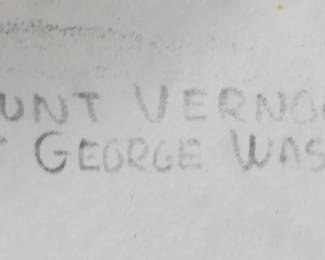 UNT VERNO
GEORGE WAS